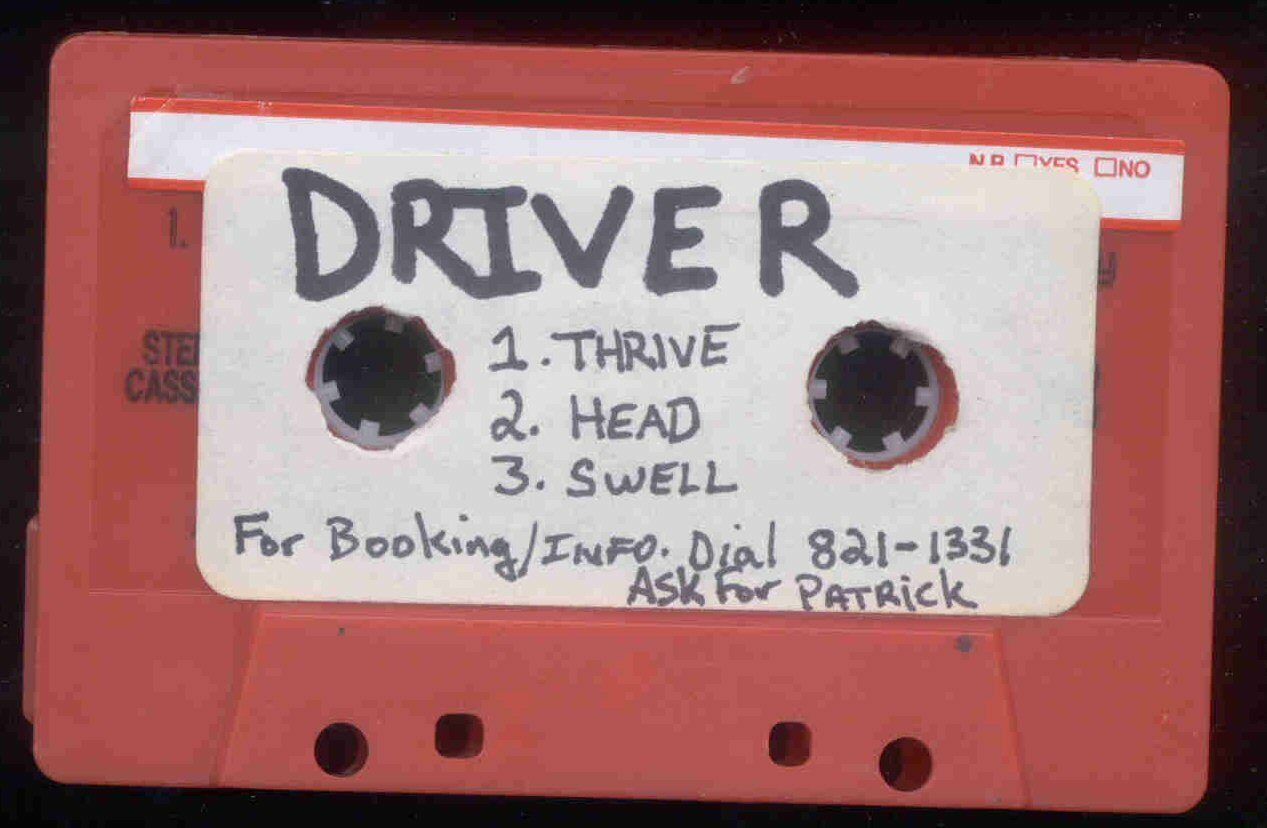 N.R. □YES □NO
DRIVER
1.
1. THRIVE
2. HEAD
3. SWELL
For Booking/INFO. Dial 821-1331
ASK For PATRICK